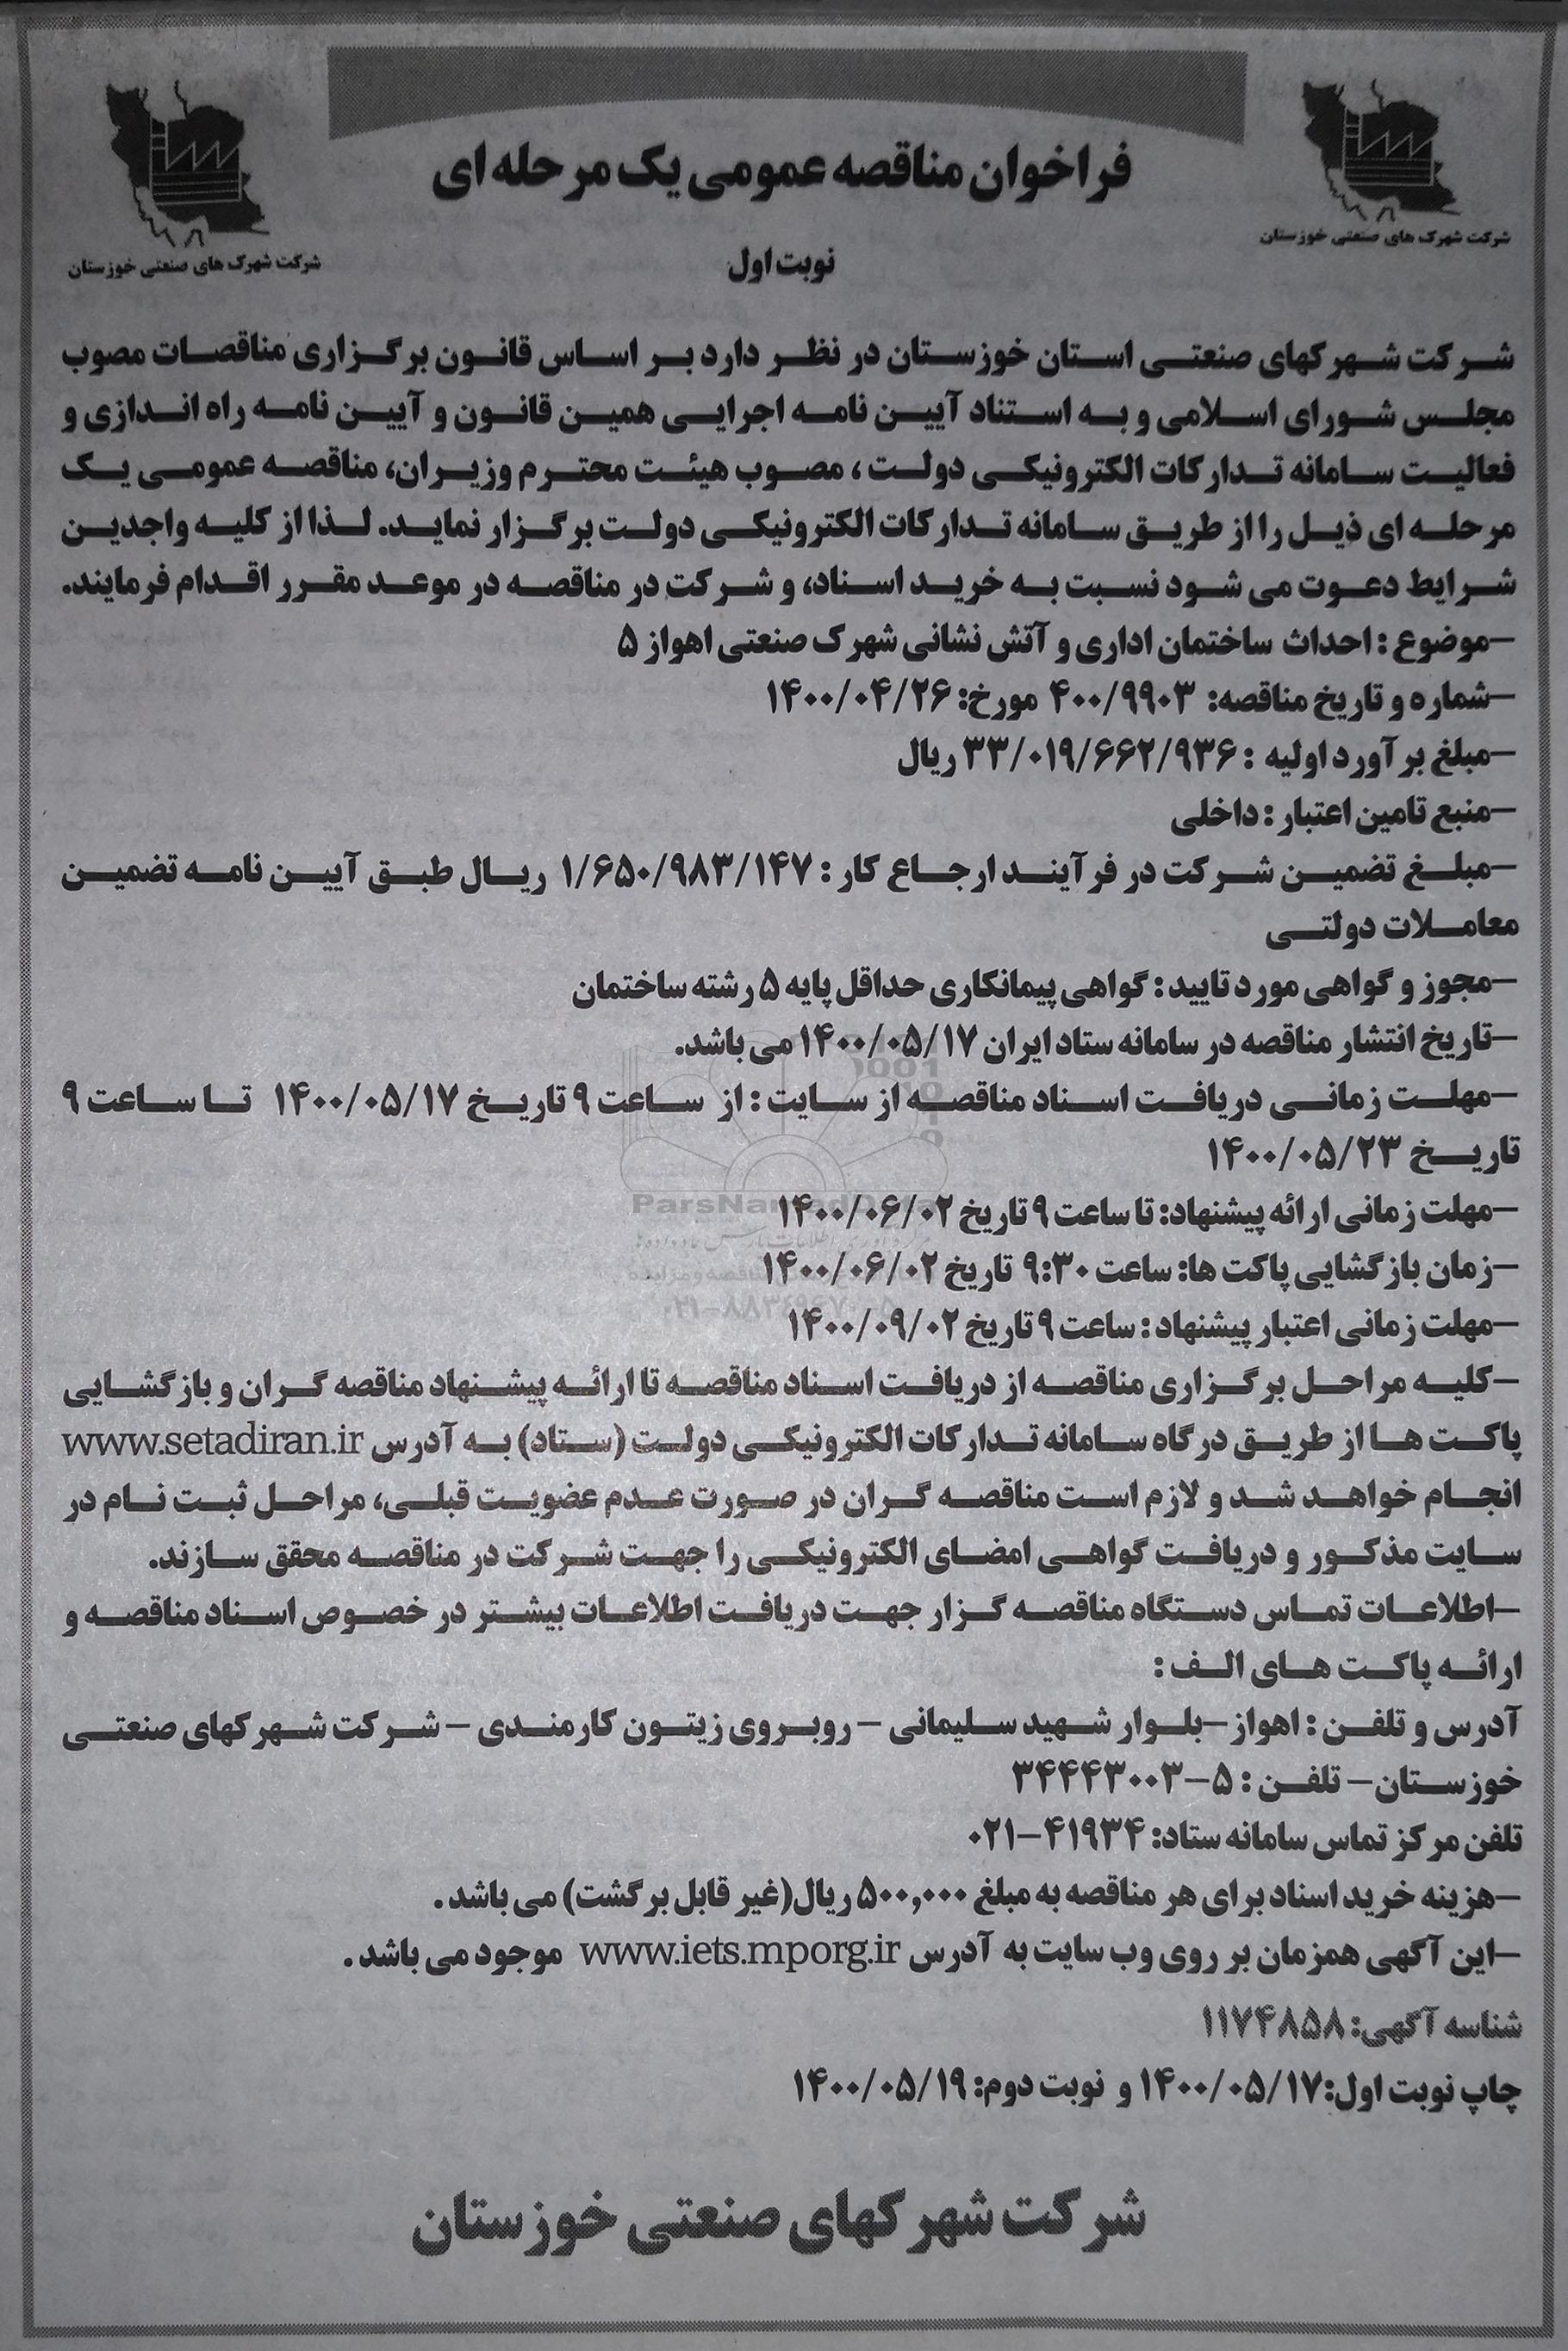 شرکت شهرک های صنعتی خوزستان
شرکت شهرک های صنعتی خوزستان
فراخوان مناقصه عمومی یک مرحله ای
نوبت اول
شرکت شهرکهای صنعتی استان خوزستان در نظر دارد بر اساس قانون برگزاری مناقصات مصوب
مجلس شورای اسلامی و به استناد آیین نامه اجرایی همین قانون و آیین نامه راه اندازی و
فعالیت سامانه تدارکات الکترونیکی دولت ، مصوب هیئت محترم وزیران، مناقصه عمومی یک
مرحله ای ذیل را از طریق سامانه تدارکات الکترونیکی دولت برگزار نماید. لذا از کلیه واجدین
شرایط دعوت می شود نسبت به خرید اسناد، و شرکت در مناقصه در موعد مقرر اقدام فرمایند.
-موضوع : احداث ساختمان اداری و آتش نشانی شهرک صنعتی اهواز ۵
-شماره و تاریخ مناقصه: ۴۰۰/۹۹۰۳ مورخ: ۱۴۰۰/۰۴/۲۶
-مبلغ برآورد اولیه : ۳۳/۰۱۹/۶۶۲/۹۳۶ ریال
-منبع تامین اعتبار : داخلی
-مبلغ تضمین شرکت در فرآیند ارجاع کار : ۱/۶۵۰/۹۸۳/۱۴۷ ریال طبق آیین نامه تضمین
معاملات دولتی
-مجوز و گواهی مورد تایید : گواهی پیمانکاری حداقل پایه ۵ رشته ساختمان
-تاریخ انتشار مناقصه در سامانه ستاد ایران ۱۴۰۰/۰۵/۱۷ می باشد.
-مهلت زمانی دریافت اسناد مناقصه از سایت : از ساعت ۹ تاریخ ۱۴۰۰/۰۵/۱۷ تا ساعت ۹
تاریخ ۱۴۰۰/۰۵/۲۳
-مهلت زمانی ارائه پیشنهاد: تا ساعت ۹ تاریخ ۱۴۰۰/۰۶/۰۲
-زمان بازگشایی پاکت ها: ساعت ۹:۳۰ تاریخ ۱۴۰۰/۰۶/۰۲
-مهلت زمانی اعتبار پیشنهاد : ساعت ۹ تاریخ ۱۴۰۰/۰۹/۰۲
-کلیه مراحل برگزاری مناقصه از دریافت اسناد مناقصه تا ارائه پیشنهاد مناقصه گران و بازگشایی
پاکت ها از طریق درگاه سامانه تدارکات الکترونیکی دولت (ستاد) به آدرس www.setadiran.ir
انجام خواهد شد و لازم است مناقصه گران در صورت عدم عضویت قبلی، مراحل ثبت نام در
سایت مذکور و دریافت گواهی امضای الکترونیکی را جهت شرکت در مناقصه محقق سازند.
-اطلاعات تماس دستگاه مناقصه گزار جهت دریافت اطلاعات بیشتر در خصوص اسناد مناقصه و
ارائه پاکت های الف :
آدرس و تلفن : اهواز -بلوار شهید سلیمانی - روبروی زیتون کارمندی - شرکت شهرکهای صنعتی
خوزستان- تلفن : ۵-۳۴۴۴۳۰۰۳
تلفن مرکز تماس سامانه ستاد: ۴۱۹۳۴-۰۲۱
-هزینه خرید اسناد برای هر مناقصه به مبلغ ۵۰۰,۰۰۰ ریال(غیر قابل برگشت) می باشد .
-این آگهی همزمان بر روی وب سایت به آدرس www.iets.mporg.ir موجود می باشد .
شناسه آگهی: ۱۱۷۴۸۵۸
چاپ نوبت اول:۱۴۰۰/۰۵/۱۷ و نوبت دوم: ۱۴۰۰/۰۵/۱۹
شرکت شهرکهای صنعتی خوزستان